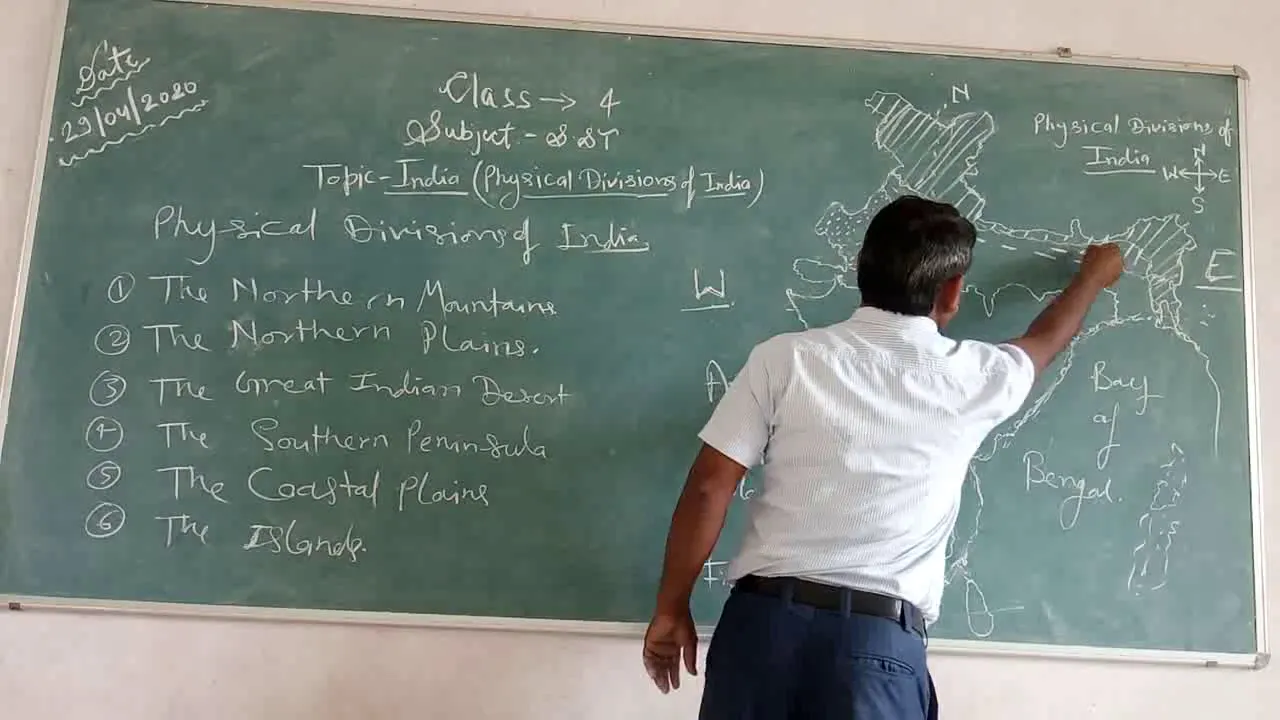 Date
29/04/2020
Class → 4
Subject - S.ST
Topic - India (Physical Divisions of India)
Physical Divisions of India
① The Northern Mountains
② The Northern Plains.
③ The Great Indian Desert
④ The Southern Peninsula
⑤ The Coastal Plains
⑥ The Islands.
N
Physical Divisions of
India
N
W E
S
W
E
Bay
of
Bengal.